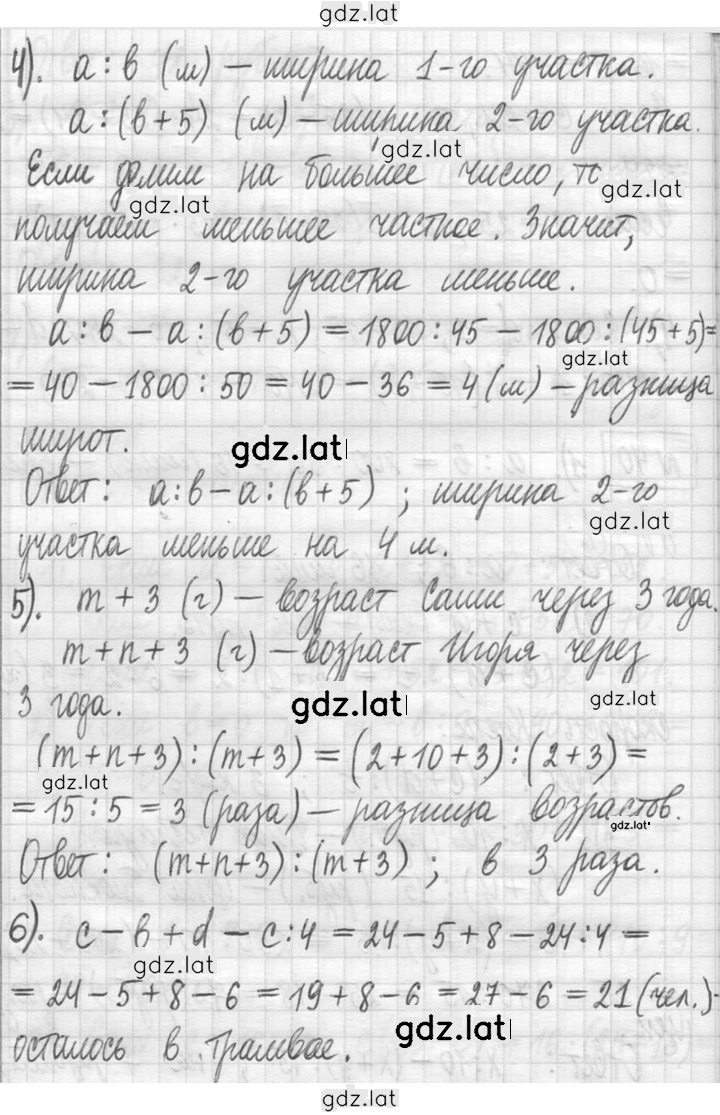 gdz.lat
4). a : в (м) – ширина 1-го участка.
a : (в + 5) (м) – ширина 2-го участка.
gdz.lat
Если делим на большее число, то
gdz.lat
gdz.lat
получаем меньшее частное. Значит,
ширина 2-го участка меньше.
a : в – a : (в + 5) = 1800 : 45 – 1800 : (45 + 5) =
gdz.lat
= 40 – 1800 : 50 = 40 – 36 = 4 (м) – разница
широт.
gdz.lat
Ответ: a : в – a : (в + 5) ; ширина 2-го
gdz.lat
участка меньше на 4 м.
5). m + 3 (г) – возраст Саши через 3 года.
m + n + 3 (г) – возраст Игоря через
3 года.
gdz.lat
gdz.lat
(m + n + 3) : (m + 3) = (2 + 10 + 3) : (2 + 3) =
gdz.lat
= 15 : 5 = 3 (раза) – разница возрастов.
gdz.lat
Ответ: (m + n + 3) : (m + 3) ; в 3 раза.
6). c – в + d – c : 4 = 24 – 5 + 8 – 24 : 4 =
gdz.lat
= 24 – 5 + 8 – 6 = 19 + 8 – 6 = 27 – 6 = 21 (чел.) –
gdz.lat
осталось в трамвае.
gdz.lat